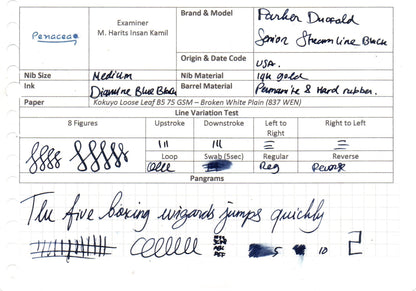 Penacea
Examiner
M. Harits Insan Kamil
Brand & Model
Parker Duofold
Senior Streamline Black
Origin & Date Code
USA.
Nib Size
Medium
Nib Material
14k gold
Ink
Diamine Blue Black
Barrel Material
Permanite & Hard rubber.
Paper
Kokuyo Loose Leaf B5 75 GSM – Broken White Plain (837 WEN)
Line Variation Test
8 Figures
Upstroke
Downstroke
Left to Right
Right to Left
Loop
Swab (5sec)
Regular
Reverse
Reg
Reverse
Pangrams
The five boxing wizards jumps quickly
5
10